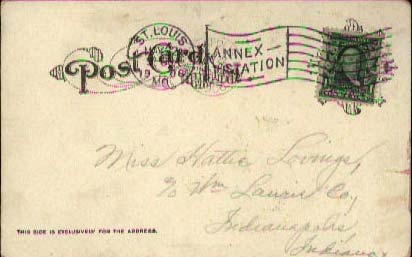 ST. LOUIS
MO.
Post Card
ANNEX
STATION
Miss Hattie Lovings,
c/o Wm Laurie Co,
Indianapolis,
Indiana.
THIS SIDE IS EXCLUSIVELY FOR THE ADDRESS.